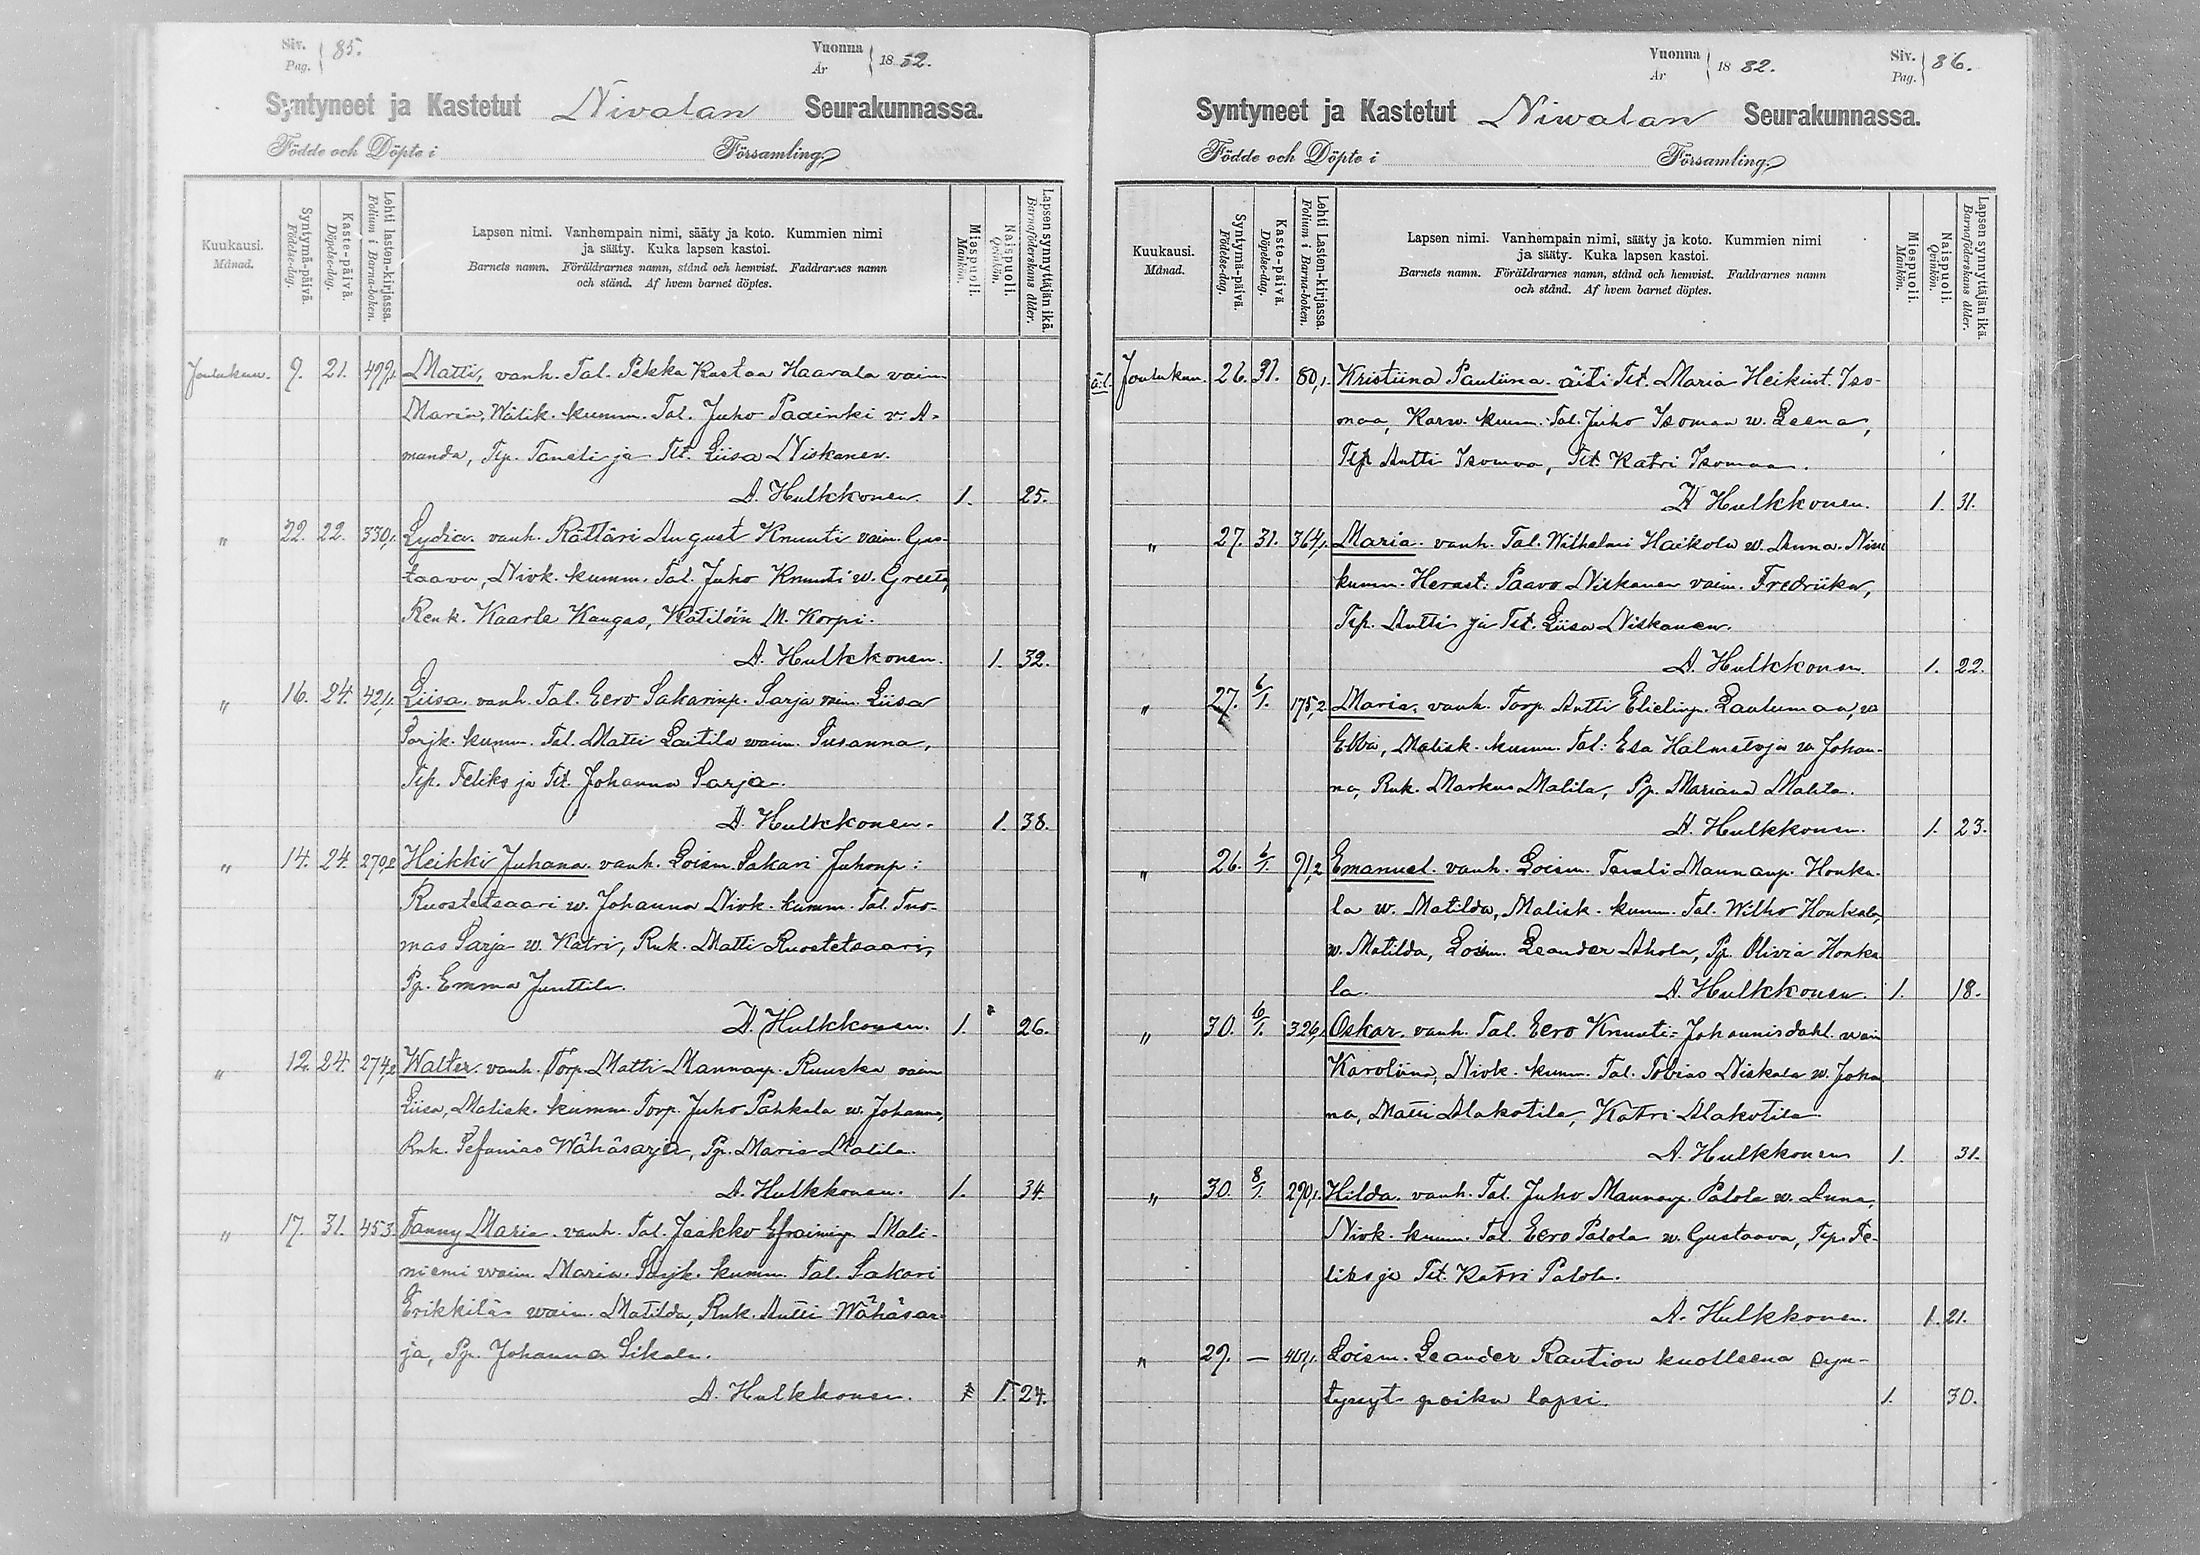 Siv. Pag. 85.
Vuonna År 1882.
Syntyneet ja Kastetut Nivalan Seurakunnassa.
Födde och Döpte i Församling.
Kuukausi. Månad.
Syntymä-päivä. Födelse-dag.
Kaste-päivä. Döpelse-dag.
Lehti lasten-kirjassa. Folium i Barna-boken.
Lapsen nimi. Vanhempain nimi, sääty ja koto. Kummien nimi
ja sääty. Kuka lapsen kastoi.
Barnets namn. Föräldrarnes namn, stånd och hemvist. Faddrarnes namn
och stånd. Af hvem barnet döptes.
Miespuoli. Mankön.
Naispuoli. Qvinkön.
Lapsen synnyttäjän ikä. Barnaföderskans ålder.
Joulukuu. 9. 21. 499,1. Matti, vanh. Tal. Pekka Kustaa Haarala vaim
Maria, Wätik. kumm. Tal. Juho Padinki v. A-
manda, Tlp. Taneli ja Tlt. Liisa Niskanen.
A. Hulkkonen. 1. 25.
" 22. 22. 330,1. Lydia. vanh. Rättäri August Knuuti vaim. Gus-
taava, Nivk. kumm. Tal. Juho Knuuti w. Greeta,
Renk. Kaarle Kangas, Kätilöin M. Korpi.
A. Hulkkonen. 1. 32.
" 16. 24. 42,1. Liisa. vanh. Tal. Eero Sakarinp. Sarja vaim. Liisa
Sarjk. kumm. Tal. Matti Laitila waim. Susanna,
Tlp. Feliks ja Tlt. Johanna Sarja.
A. Hulkkonen. 1. 38.
" 14. 24. 270,2 Heikki Juhana. vanh. Loism. Sakari Juhonp:
Ruostetsaari w. Johanna Nivk. kumm. Tal. Tuo-
mas Sarja w. Katri, Rnk. Matti Ruostetsaari,
Pp. Emma Junttila.
A. Hulkkonen. 1. 26.
" 12. 24. 274,2 Walter. vanh. Torp. Matti Mannanp. Ruuska vaim
Liisa, Malisk. kumm. Torp. Juho Pahkala w. Johanna,
Rnk. Sefanias Wähäsarja, Pp. Maria Malila.
A. Hulkkonen. 1. 34.
" 17. 31. 453 Fanny Maria. vanh. Tal. Jaakko Efraimip. Mali-
niemi waim. Maria. Sarjk. kumm. Tal. Sakari
Erikkilä waim. Matilda, Rnk. Antti Wähäsar-
ja, Pp. Johanna Sikala.
A. Hulkkonen. 1. 24.
Vuonna År 1882.
Siv. Pag. 86.
Syntyneet ja Kastetut Niwalan Seurakunnassa.
Födde och Döpte i Församling.
Kuukausi. Månad.
Syntymä-päivä. Födelse-dag.
Kaste-päivä. Döpelse-dag.
Lehti Lasten-kirjassa. Folium i Barna-boken.
Lapsen nimi. Vanhempain nimi, sääty ja koto. Kummien nimi
ja sääty. Kuka lapsen kastoi.
Barnets namn. Föräldrarnes namn, stånd och hemvist. Faddrarnes namn
och stånd. Af hvem barnet döptes.
Miespuoli. Mankön.
Naispuoli. Qvinkön.
Lapsen synnyttäjän ikä. Barnaföderskans ålder.
ä.l. Joulukuu. 26. 31. 80,1. Kristiina Pauliina. äiti Tlt. Maria Heikint. Iso-
maa, Karw. kumm. Tal. Juho Isomaa w. Leena,
Tlp. Antti Isomaa, Tlt. Katri Isomaa.
A Hulkkonen. 1. 31.
" 27. 31. 364,1. Maria. vanh. Tal. Wilhelmi Haikola w. Anna. Niw
kumm. Herast: Paavo Niskanen vaim. Fredriika,
Tlp. Antti ja Tlt. Liisa Niskanen.
A. Hulkkonen. 1. 22.
" 27. 6/1. 175,2 Maria, vanh. Torp. Antti Elielinp. Lautumaa, w
Ebba, Malisk. kumm. Tal: Esa Halmetoja w. Johan-
na, Rnk. Markus Malila, Pp. Mariana Malila.
A. Hulkkonen. 1. 23.
" 26. 6/1. 91,2 Emanuel. vanh. Loism. Taneli Mannanp. Honka-
la w. Matilda, Malisk. kumm. Tal. Wilho Honkala,
w. Matilda, Loism. Leander Ahola, Pp. Olivia Honka-
la. A. Hulkkonen. 1. 18.
" 30. 6/1. 326,1 Oskar. vanh. Tal. Eero Knuuti=Johannisdahl waim
Karoliina, Nivk. kumm. Tal. Tobias Niskala w. Joha
na, Matti Alakotila, Katri Alakotila
A. Hulkkonen 1. 31.
" 30. 8/1. 290,1. Hilda. vanh. Tal. Juho Mannanp. Palola w. Anna,
Nivk. kumm. Tal. Eero Palola w. Gustaava, Tlp. Fe-
liks ja Tlt. Katri Palola.
A. Hulkkonen. 1. 21.
" 29. — Loism. Leander Raution kuolleena syn-
tynyt poika lapsi. 1. 30.